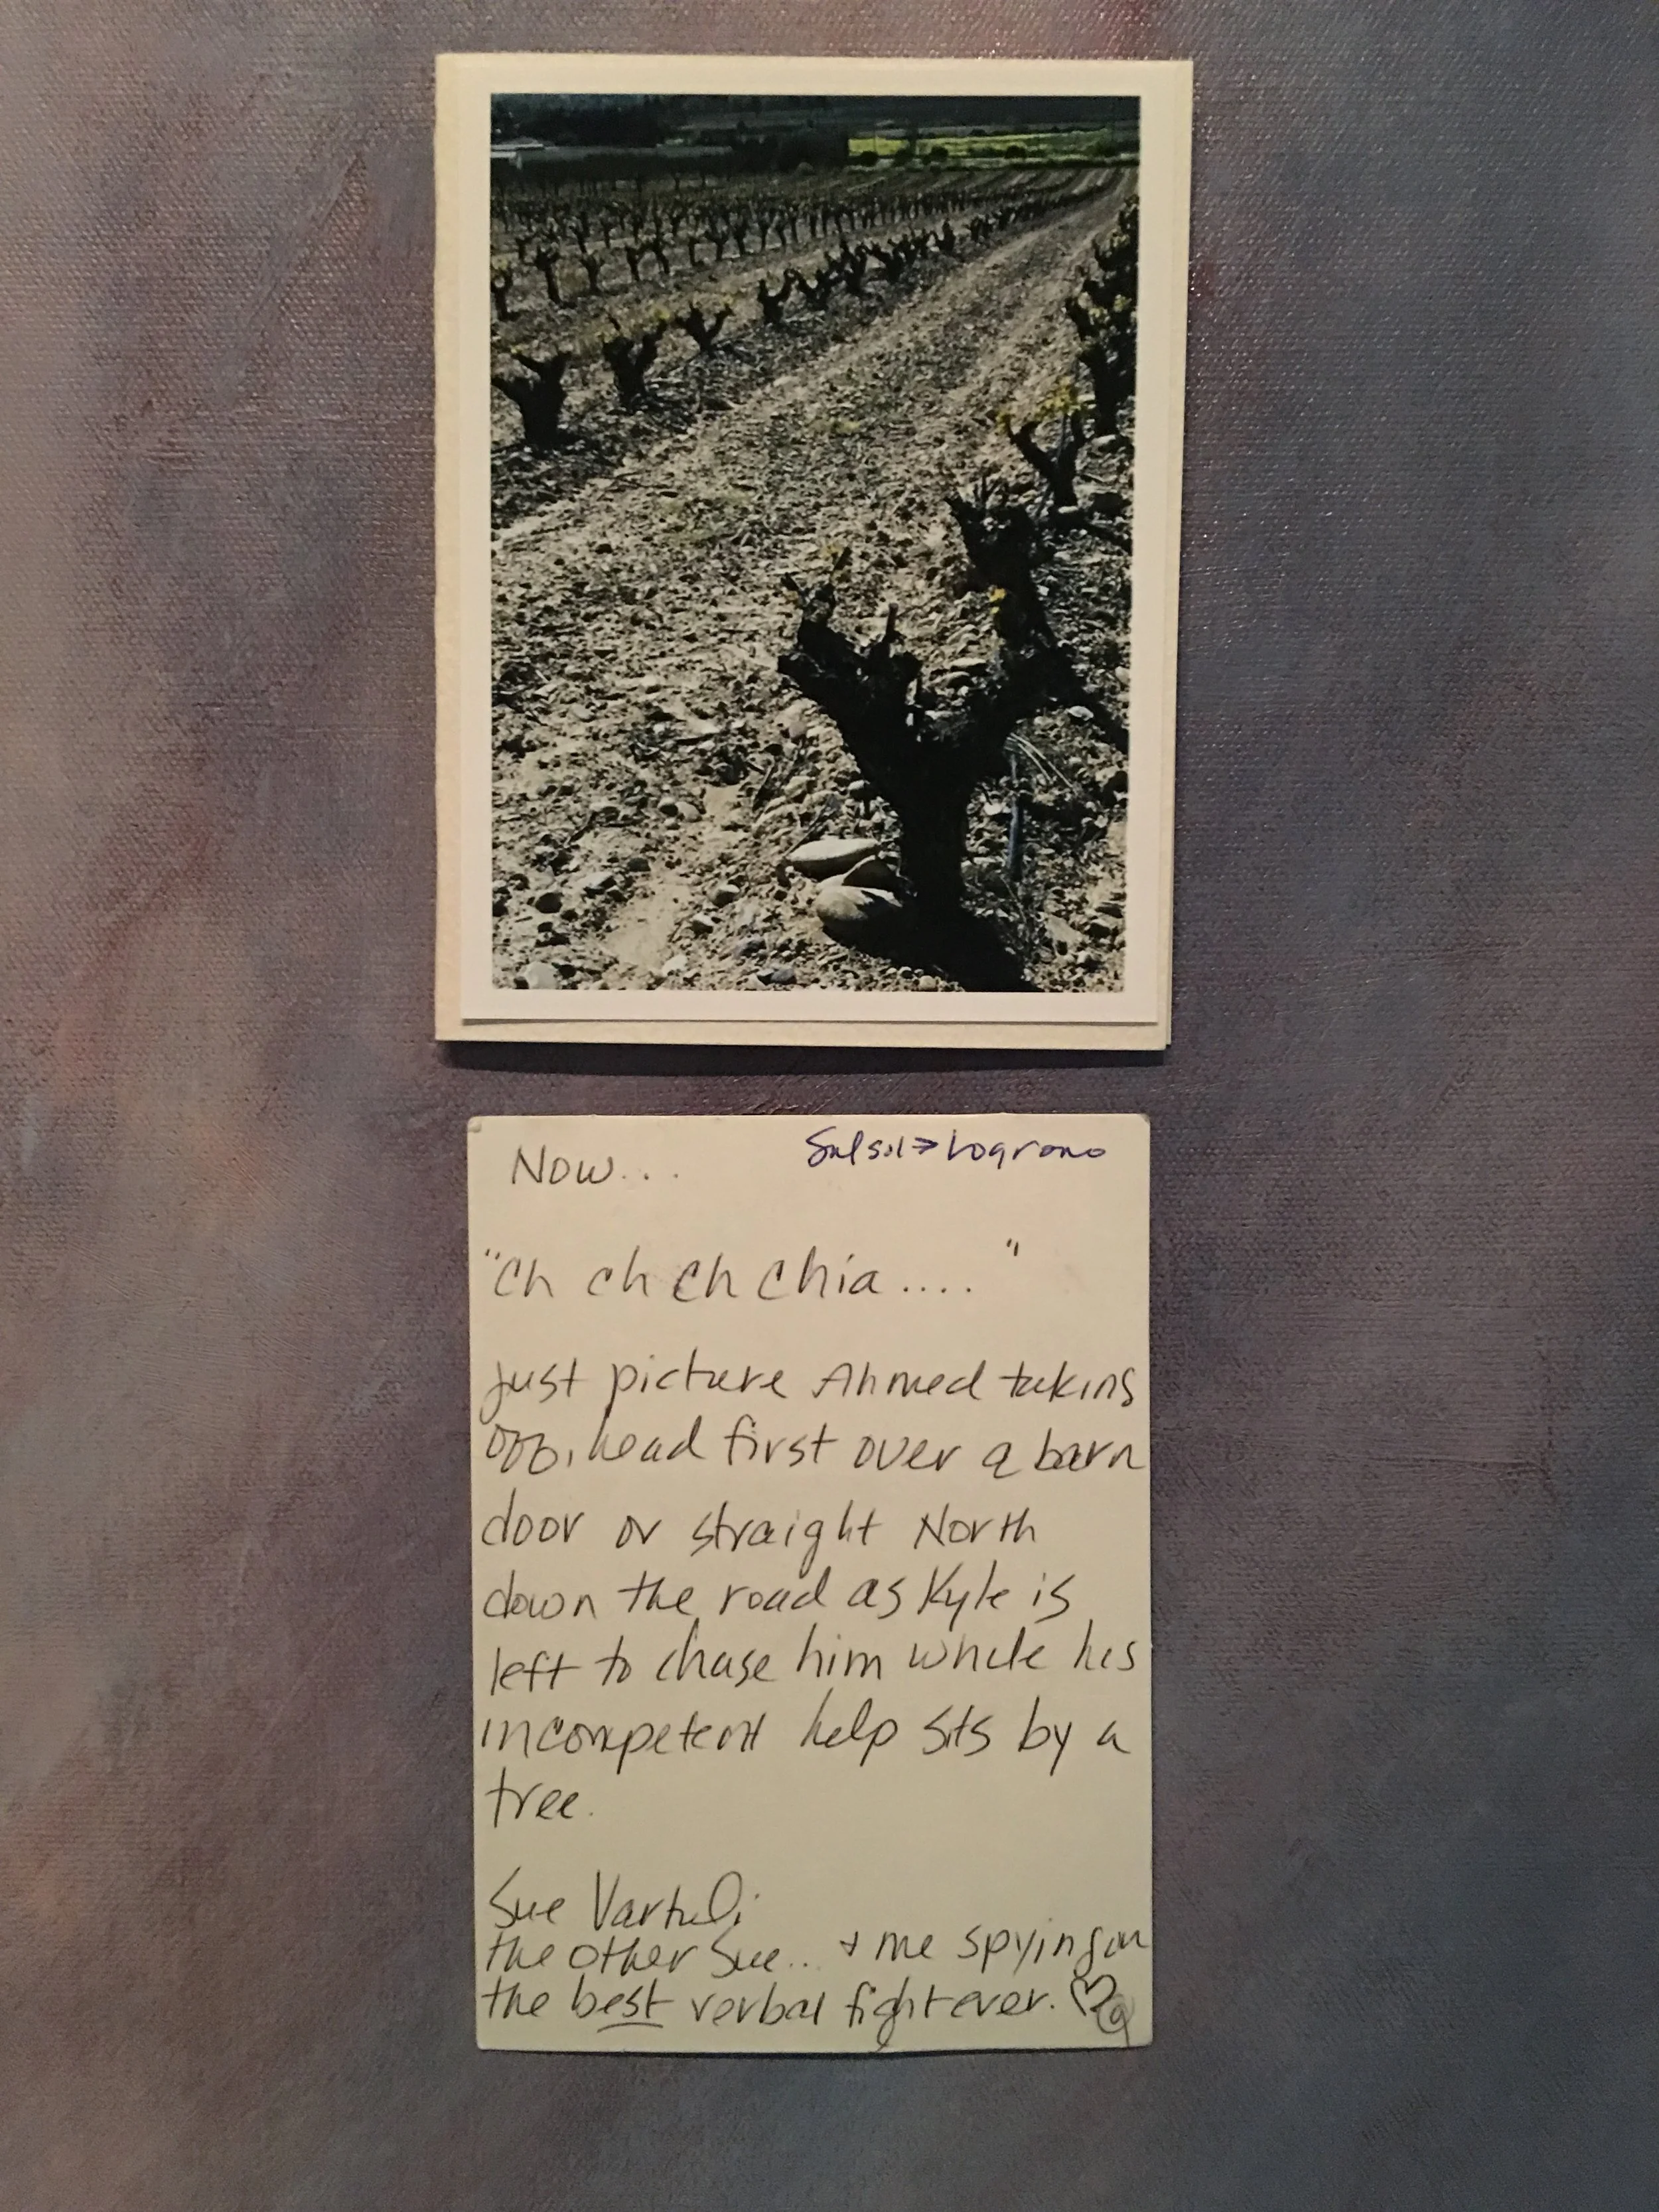 Now... Sulsol → Logrono
"Ch ch ch chia...."
Just picture Ahmed taking
off, head first over a barn
door or straight North
down the road as Kyle is
left to chase him while his
incompetent help sits by a
tree.
Sue Vartuli
the other Sue... + me spying on
the best verbal fight ever.